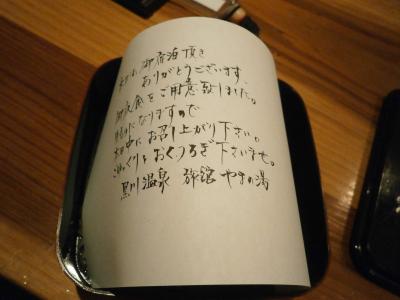 本日は 御宿泊頂き
ありがとうございます。
御夜食をご用意致しました。
になりますので
中にお召し上がり下さい。
ごゆっくりとおくつろぎ下さいませ。
黒川温泉 旅館 やまの湯